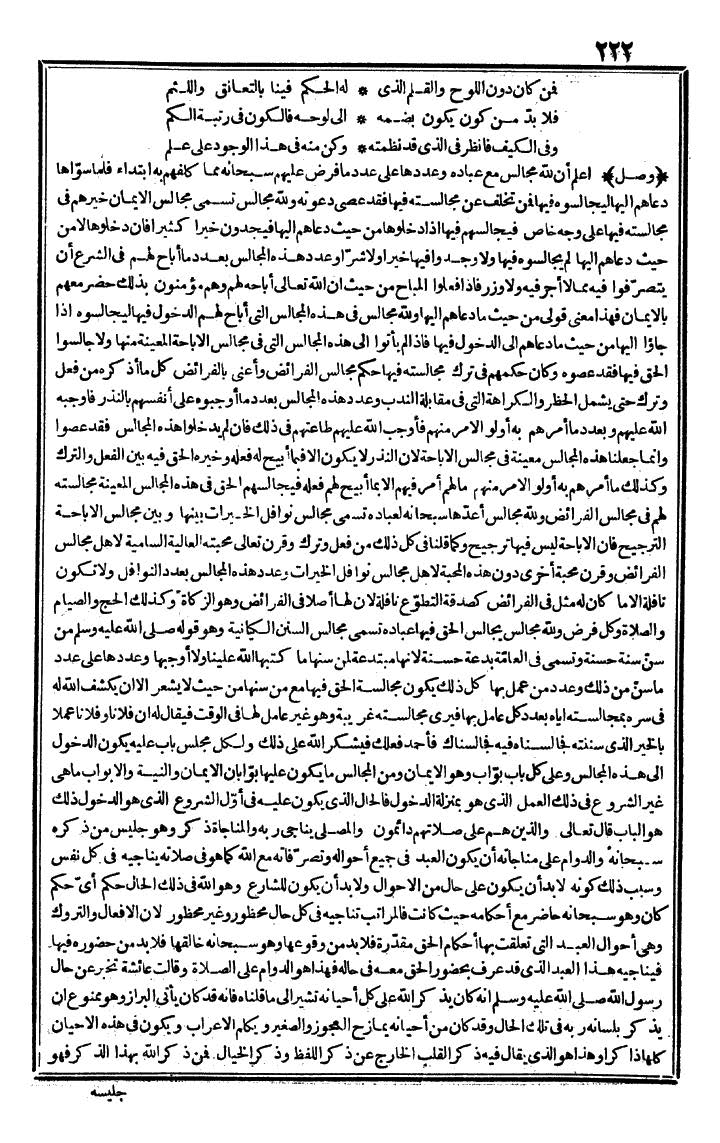 ٢٢٢
فمن كان دون اللوح والقلم الذى * له الحكم فينا بالتعانق واللثم
فلا بدّ من كون يكون بضمه * الى لوحه فالكون فى رتبة الكم
وفى الكيف فانظر فى الذى قد نظمته * وكن منه فى هذا الوجود على علم
﴿وصل﴾ اعلم أن لله مجالس مع عباده وعددها على عدد ما فرض عليهم سبحانه مما كلفهم به ابتداء فلما سوّاها
دعاهم اليها ليجالسوه فيها فمن تخلف عن مجالسته فيها فقد عصى دعوته ولله مجالس تسمى مجالس الايمان خيرهم فى
مجالسته فيها على وجه خاص فيجالسهم فيها اذا دخلوها من حيث دعاهم اليها فيجدون خيرا كثيرا فان دخلوها لا من
حيث دعاهم اليها لم يجالسوه فيها ولا وجدوا فيها خيرا ولا شرّا وعدد هذه المجالس بعدد ما أباح لهم فى الشرع أن
يتصرّفوا فيه مما لا أجر فيه ولا وزر فاذا فعلوا المباح من حيث ان الله تعالى أباحه لهم وهم مؤمنون بذلك حضر معهم
بالايمان فهذا معنى قولى من حيث ما دعاهم اليها ولله مجالس فى هذه المجالس التى أباح لهم الدخول فيها ليجالسوه اذا
جاؤا اليها من حيث ما دعاهم الى الدخول فيها فاذا لم يأتوا الى هذه المجالس التى فى مجالس الاباحة المعينة منها ولا جالسوا
الحق فيها فقد عصوه وكان حكمهم فى ترك مجالسته فيها حكم مجالس الفرائض وأعنى بالفرائض كل ما أذكره من فعل
وترك حتى يشمل الحظر والكراهة التى فى مقابلة الندب وعدد هذه المجالس بعدد ما أوجبوه على أنفسهم بالنذر فاوجبه
الله عليهم وبعدد ما أمرهم به أولو الامر منهم فأوجب الله عليهم طاعتهم فى ذلك فان لم يدخلوا هذه المجالس فقد عصوا
وانما جعلنا هذه المجالس معينة فى مجالس الاباحة لان النذر لا يكون الا فيما أبيح له فعله وخيره الحق فيه بين الفعل والترك
وكذلك ما أمرهم به أولو الامر منهم مالهم أمر فيهم الا بما أبيح لهم فعله فيجالسهم الحق فى هذه المجالس المعينة مجالسته
لهم فى مجالس الفرائض ولله مجالس أعدّها سبحانه لعباده تسمى مجالس نوافل الخيرات بينها وبين مجالس الاباحة
الترجيح فان الاباحة ليس فيها ترجيح وكما قلنا فى كل ذلك من فعل وترك وقرن تعالى محبته العالية السامية لاهل مجالس
الفرائض وقرن محبة أخرى دون هذه المحبة لاهل مجالس نوافل الخيرات وعدد هذه المجالس بعدد النوافل ولا تكون
نافلة الا ما كان له مثل فى الفرائض كصدقة التطوّع نافلة لان لها أصلا فى الفرائض وهو الزكاة وكذلك الحج والصيام
والصلاة وكل فرض ولله مجالس يجالس الحق فيها عباده تسمى مجالس السنن الكيانية وهو قوله صلى الله عليه وسلم من
سنّ سنة حسنة وتسمى فى العامّة بدعة حسنة لانها مبتدعة لمن سنها ما كتبها الله علينا ولا أوجبها وعددها على عدد
ما سنّ من ذلك وعدد من عمل بها كل ذلك يكون مجالسة الحق فيها مع من سنها من حيث لا يشعر الا ان يكشف الله له
فى سره بمجالسته اياه بعدد كل عامل بها فيرى مجالسته غريبة وهو غير عامل لها فى الوقت فيقال له ان فلانا وفلانا عملا
بالخير الذى سننته فجالسناه فيه فجالسناك فأحمد فعلك فيشكر الله على ذلك ولكل مجلس باب عليه يكون الدخول
الى هذه المجالس وعلى كل باب بوّاب وهو الايمان ومن المجالس ما يكون عليها بوّابان الايمان والنية والابواب ما هى
غير الشروع فى ذلك العمل الذى هو بمنزلة الدخول فالحال الذى يكون عليه فى أوّل الشروع الذى هو الدخول ذلك
هو الباب قال تعالى والذين هم على صلاتهم دائمون والمصلى يناجى ربه والمناجاة ذكر وهو جليس من ذكره
سبحانه والدوام على مناجاته أن يكون العبد فى جميع أحواله وتصرّفاته مع الله كما هو فى صلاته يناجيه فى كل نفس
وسبب ذلك كونه لا بد أن يكون على حال من الاحوال ولا بد أن يكون للشارع وهو الله فى ذلك الحال حكم أىّ حكم
كان وهو سبحانه حاضر مع أحكامه حيث كانت فالمراتب تناجيه فى كل حال محظور وغير محظور لان الافعال والتروك
وهى أحوال العبد التى تعلقت بها أحكام الحق مقدّرة فلا بد من وقوعها وهو سبحانه خالقها فلا بد من حضوره فيها
فيناجيه هذا العبد الذى قد عرف بحضور الحق معه فى حاله فهذا هو الدوام على الصلاة وقالت عائشة تخبر عن حال
رسول الله صلى الله عليه وسلم انه كان يذكر الله على كل أحيانه تشير الى ما قلناه فانه قد كان يأتى البراز وهو ممنوع ان
يذكر بلسانه ربه فى تلك الحال وقد كان من أحيانه يمازح العجوز والصغير ويكلم الاعراب ويكون فى هذه الاحيان
كلها ذاكرا وهذا هو الذى يقال فيه ذكر القلب الخارج عن ذكر اللفظ وذكر الخيال فمن ذكر الله بهذا الذكر فهو
جليسه